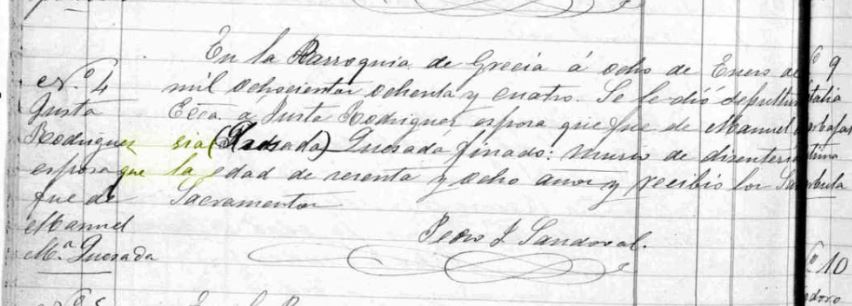 En la Parroquia de Grecia á ocho de Enero de
mil ochocientos ochenta y cuatro. Se le dió sepultura
Ecca á Justa Rodrigues esposa que fue de Manuel
sia (Quesada) Quesada finado: murio de disenteria
la edad de sesenta y ocho anos y recibio los San
Sacramentos
Pedro J Sandoval.
No. 4
Justa
Rodrigues
esposa que
fue de
Manuel
Ma. Quesada
No. 9
No. 10